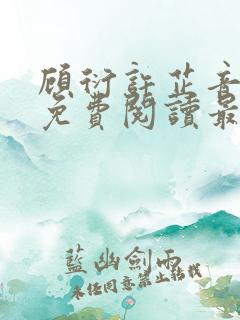 顾衍許芷音
免費閱讀最
藍幽劍雨
未经同意禁止转载